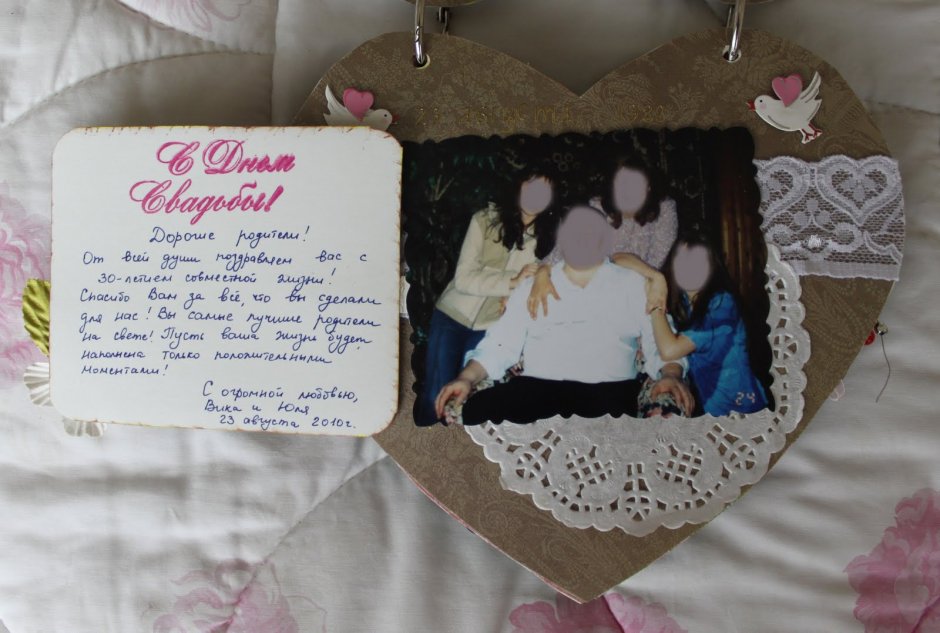 С Днём
Свадьбы!
Дорогие родители!
От всей души поздравляем вас с
30-летием совместной жизни!
Спасибо Вам за всё, что вы сделали
для нас! Вы самые лучшие родители
на свете! Пусть ваша жизнь будет
наполнена только положительными
моментами!
С огромной любовью,
Вика и Юля
23 августа 2010г.
23 августа
24